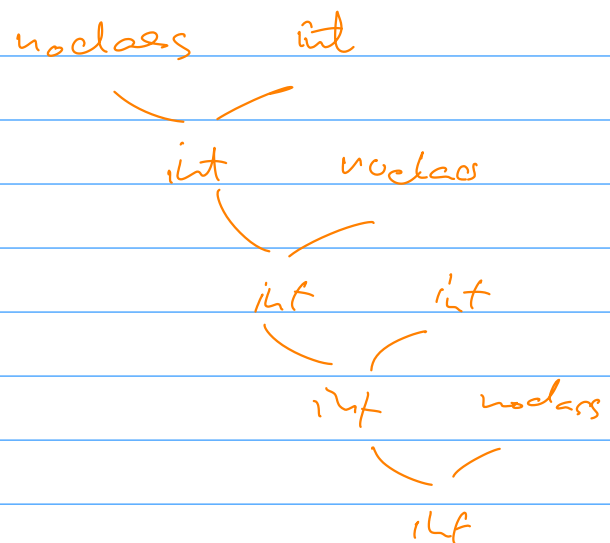 noclass int
int noclass
int int
int noclass
int